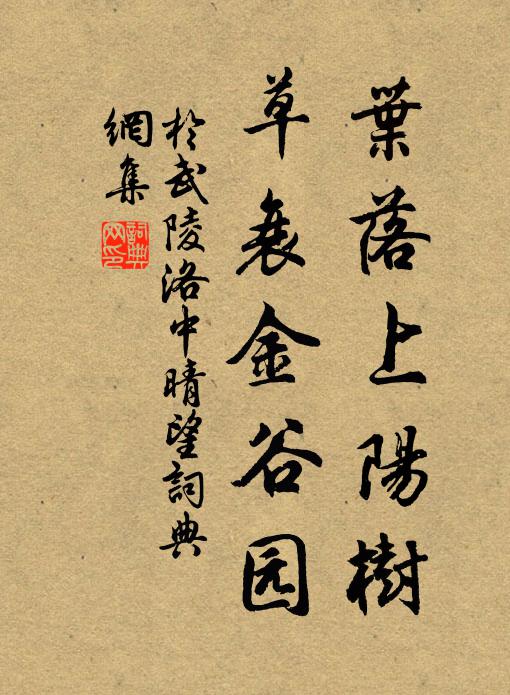 葉落上陽樹
草衰金谷园
於武陵洛中晴望詞典
網集
詞典
网印